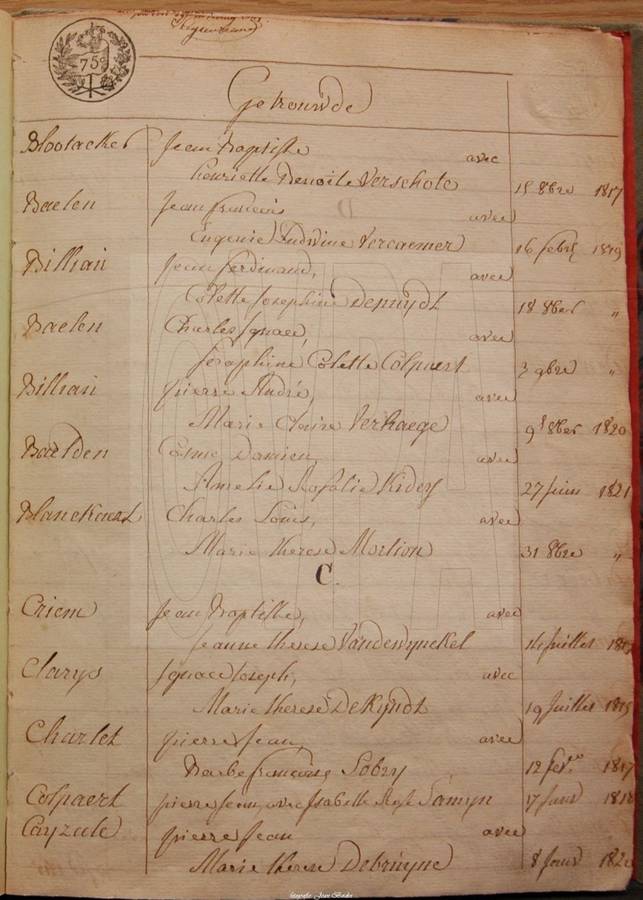 75
Getrouwde
Blootacker Jean Baptiste avec
Henriette Benoite Verschote 15 8bre 1817
Baelen Jean francois avec
Eugenie Ludwine Vercaemer 16 febr 1819
Billiau Jean ferdinand, avec
Colette Josephine Demuydt 18 8ber "
Baelen Charles Ignace, avec
Josephine Colette Colpaert 3 9bre "
Billiau pierre André, avec
Marie Claire Verhaege 9 8ber 1820
Baelden Cosme Damien, avec
Amelie Rosalie 27 juin 1821
Blanckaert Charles Louis, avec
Marie therese Mortion 31 8bre "
C.
Criem Jean Baptiste, avec
Jeanne therese Vandewynckel 14 juillet
Clarys Ignace Joseph, avec
Marie therese DeRyndt 19 Juillet 1815
Charlet pierre Jean, avec
Barbe françoise Sobry 12 fev. 1817
Colpaert pierre Jean, avec Isabelle Rose Samyn 17 janv 1818
Cayzeele pierre Jean avec
Marie therese Debruyne 8 Janv 1820